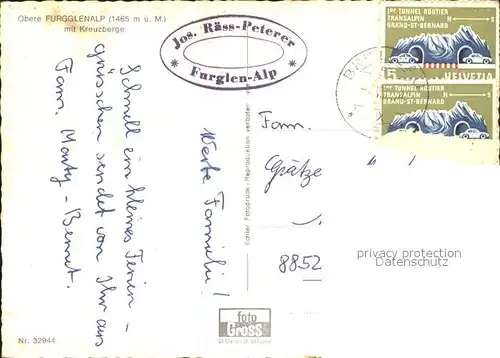 Obere FURGGLENALP (1465 m ü. M.)
mit Kreuzberge
Jos. Räss-Peterer
Furglen-Alp
1er TUNNEL ROUTIER
TRANSALPIN N S
GRAND-ST-BERNARD
5 HELVETIA
1er TUNNEL ROUTIER
TRANSALPIN N S
GRAND-ST-BERNARD
Werte Familie!
Schnell ein kleines Ferien-
grüsschen sendet von Ihr aus
Fam. Monty-Bernet.
Fam.
8852
Echter Fotodruck - Reproduktion verboten
privacy protection
Datenschutz
foto
Gross
Nr. 32944